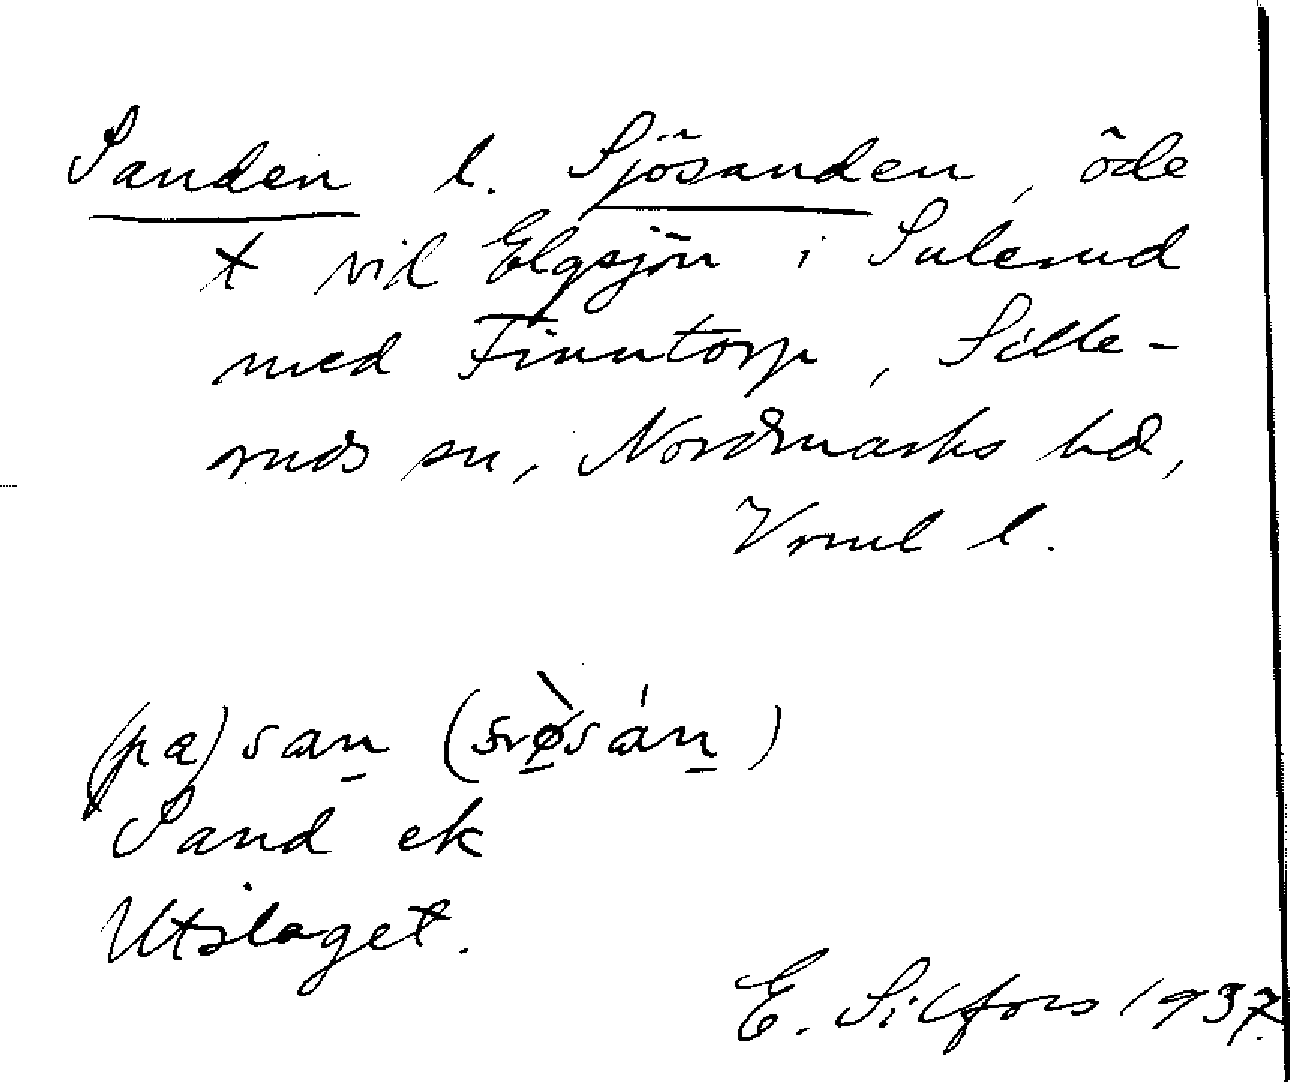 Sanden l. Sjösanden, öde
t vid Elgsjön i Sulerud
med Finntorp, Sille-
ruds sn, Nordmarks hd,
Vrml l.
(pa) san (søsán)
Sand ek
Utslaget.
E. Silfors 1937.